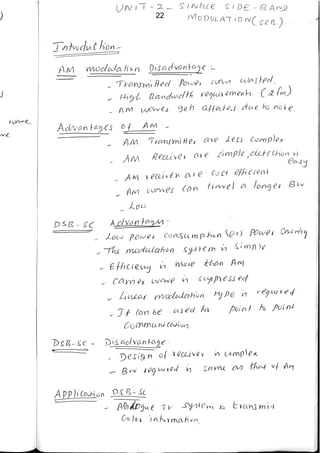 UNIT-2- SINGLE SIDE-BAND
22 MODULATION(SSB)
Introduction:-
AM modulation Disadvantage:-
- Transmitted Power wasted.
- High Bandwidth requirement. (2fm)
- AM waves get affected due to noise.
wave
Advantages of AM -
- AM Transmitter are Less Complex
- AM Receiver are simple, detection is
Easy
- AM receiver are cost efficient
- AM waves can travel a longer BW
- Low.
DSB-SC Advantages-
- Low power Consumption (or) Power Saving
- The modulation system is Simple
- Efficiency is more than AM
- Carrier wave is suppressed
- Linear modulation type is required.
- It can be used for Point to Point
Communication
DSB-SC - Disadvantage-
- Design of receiver is complex
- BW required is same as that of AM
Application DSB-SC
- Analogue TV system to transmit
Color information.